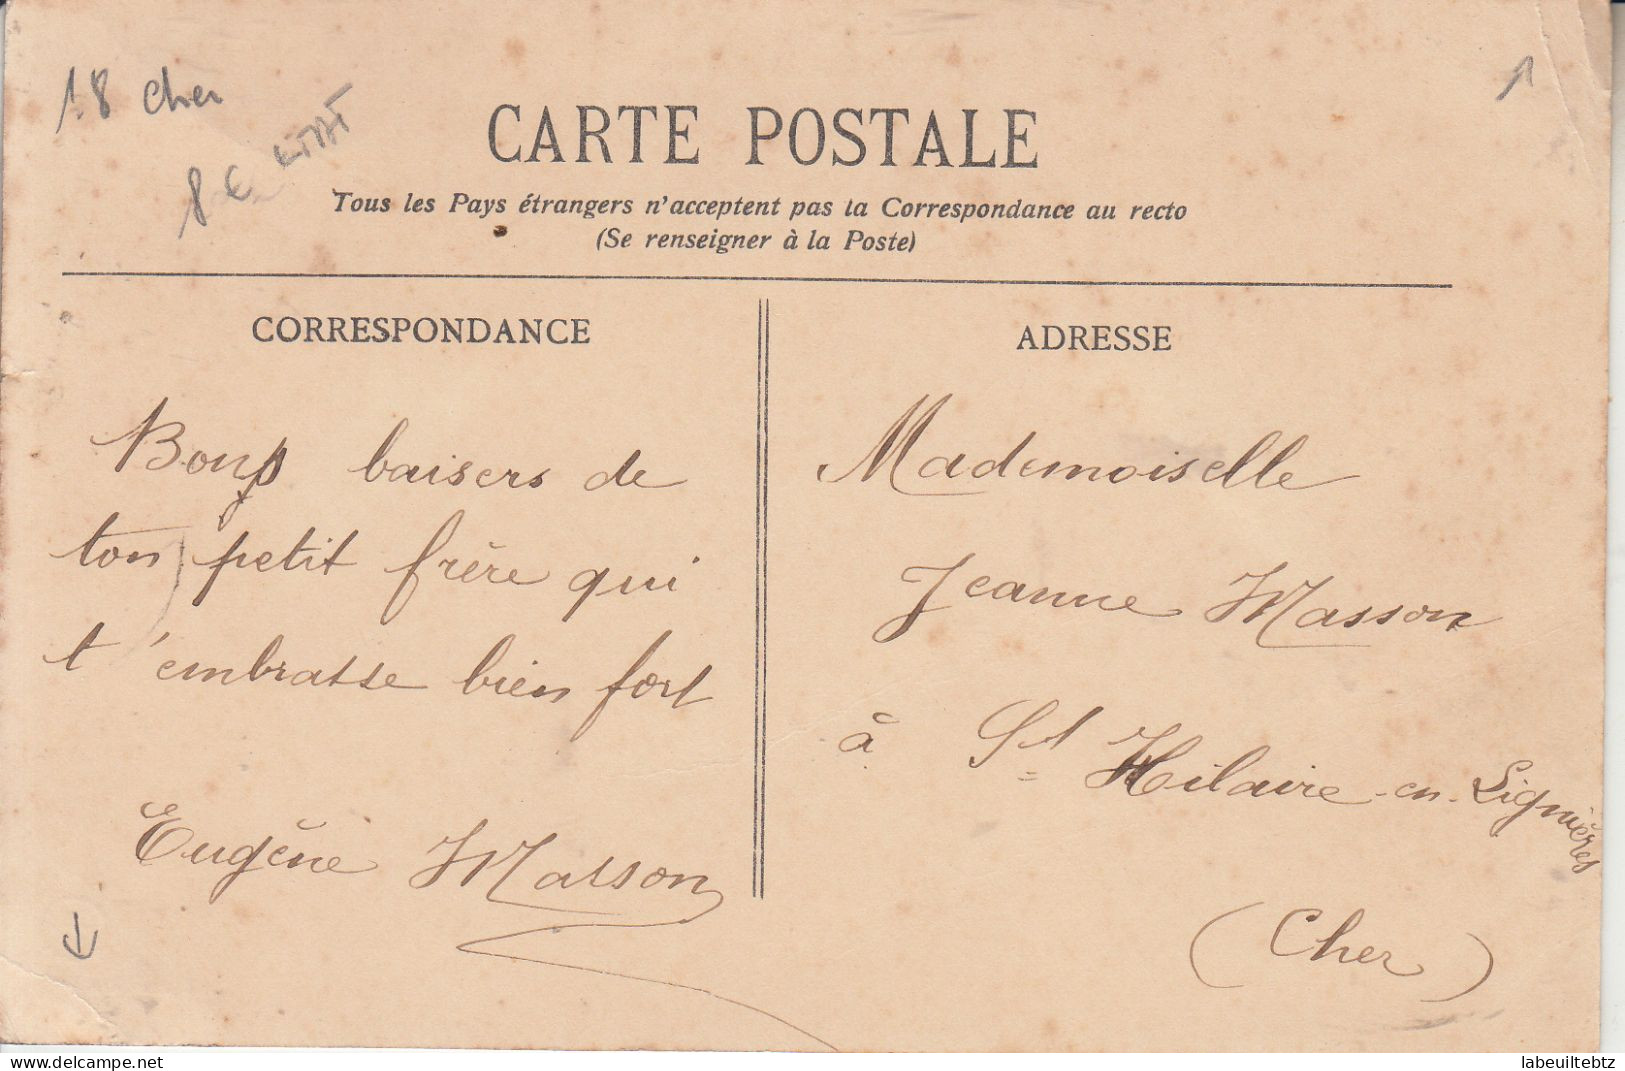 18 Cher
8 € ETAT
CARTE POSTALE
Tous les Pays étrangers n'acceptent pas la Correspondance au recto
(Se renseigner à la Poste)
CORRESPONDANCE
Bons baisers de
ton petit frère qui
t'embrasse bien fort
Eugène Masson
ADRESSE
Mademoiselle
Jeanne Masson
à St Hilaire-en-Lignières
(Cher)
www.delcampe.net
labeuiltebtz